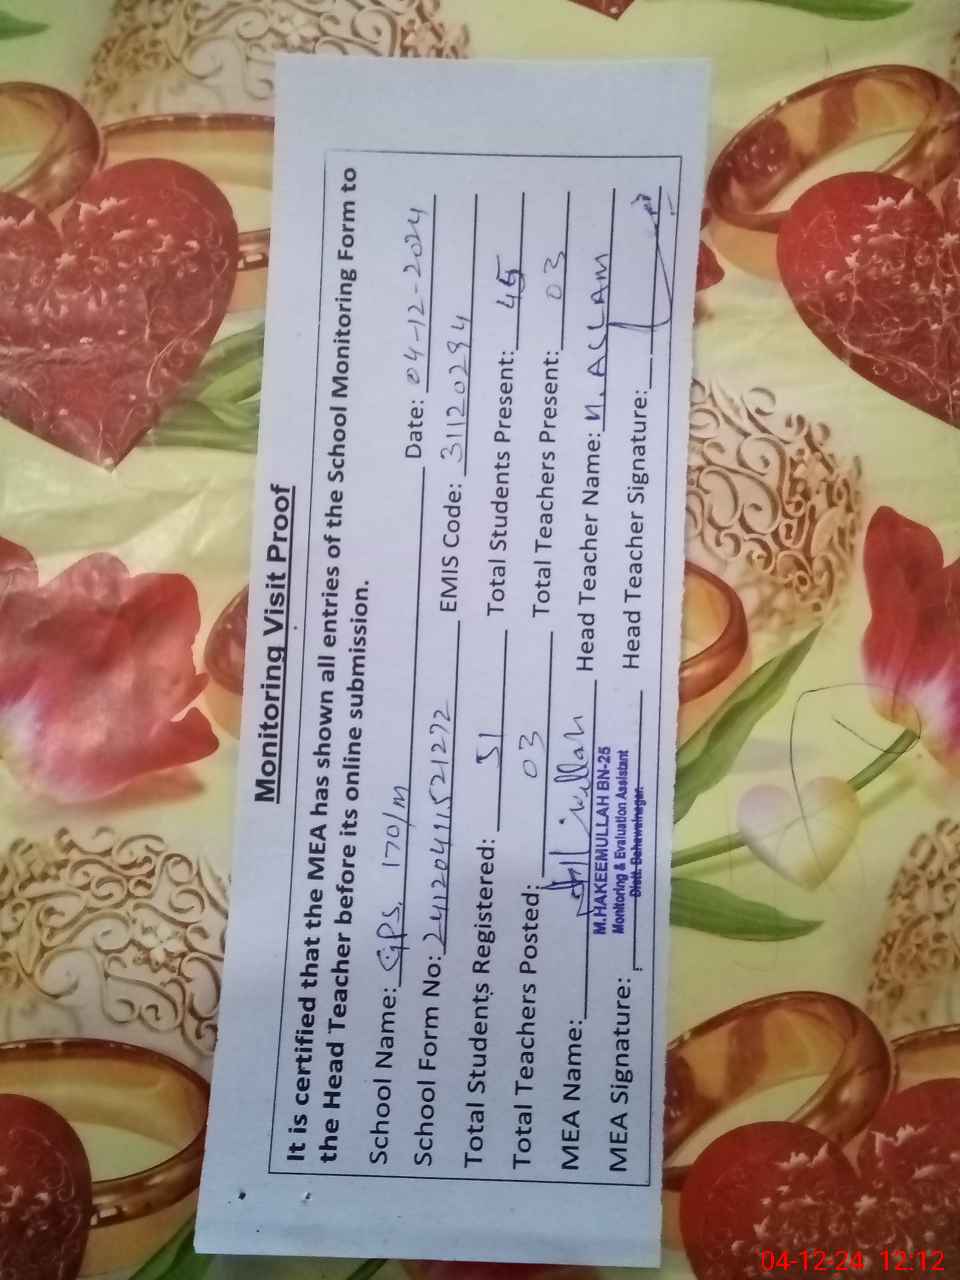 Monitoring Visit Proof
It is certified that the MEA has shown all entries of the School Monitoring Form to
the Head Teacher before its online submission.
School Name: GPS, 170/M Date: 04-12-2024
School Form No: EMIS Code: 31120294
Total Students Registered: 51 Total Students Present: 45
Total Teachers Posted: 03 Total Teachers Present: 03
MEA Name: Head Teacher Name: M. ASLAM
M.HAKEEMULLAH BN-25
Monitoring & Evaluation Assistant
Distt. Bahawalnagar.
MEA Signature: Head Teacher Signature:
04-12-24 12:12